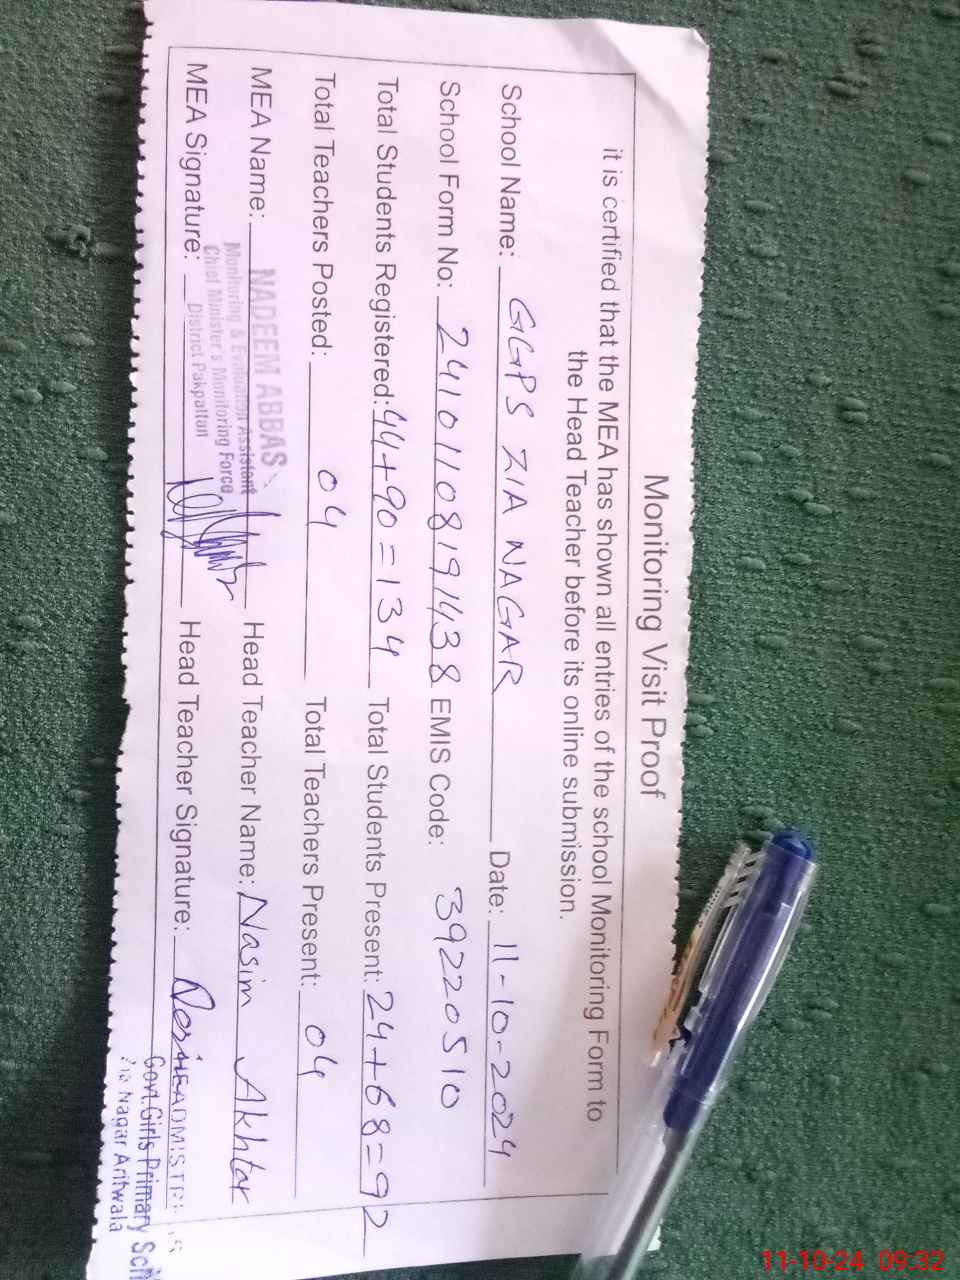 Monitoring Visit Proof
it is certified that the MEA has shown all entries of the school Monitoring Form to
the Head Teacher before its online submission.
School Name: GGPS ZIA NAGAR Date: 11-10-2024
School Form No: 24101108191438 EMIS Code: 39220510
Total Students Registered: 44+90=134 Total Students Present: 24+68=92
Total Teachers Posted: 04 Total Teachers Present: 04
MEA Name: NADEEM ABBAS Head Teacher Name: Nasim Akhtar
Monitoring & Evaluation Assistant
Chief Minister's Monitoring Force
District Pakpattan
MEA Signature: Head Teacher Signature:
HEADMISTRESS
Govt.Girls Primary Sch
Zia Nagar Arifwala
11-10-24 09:32